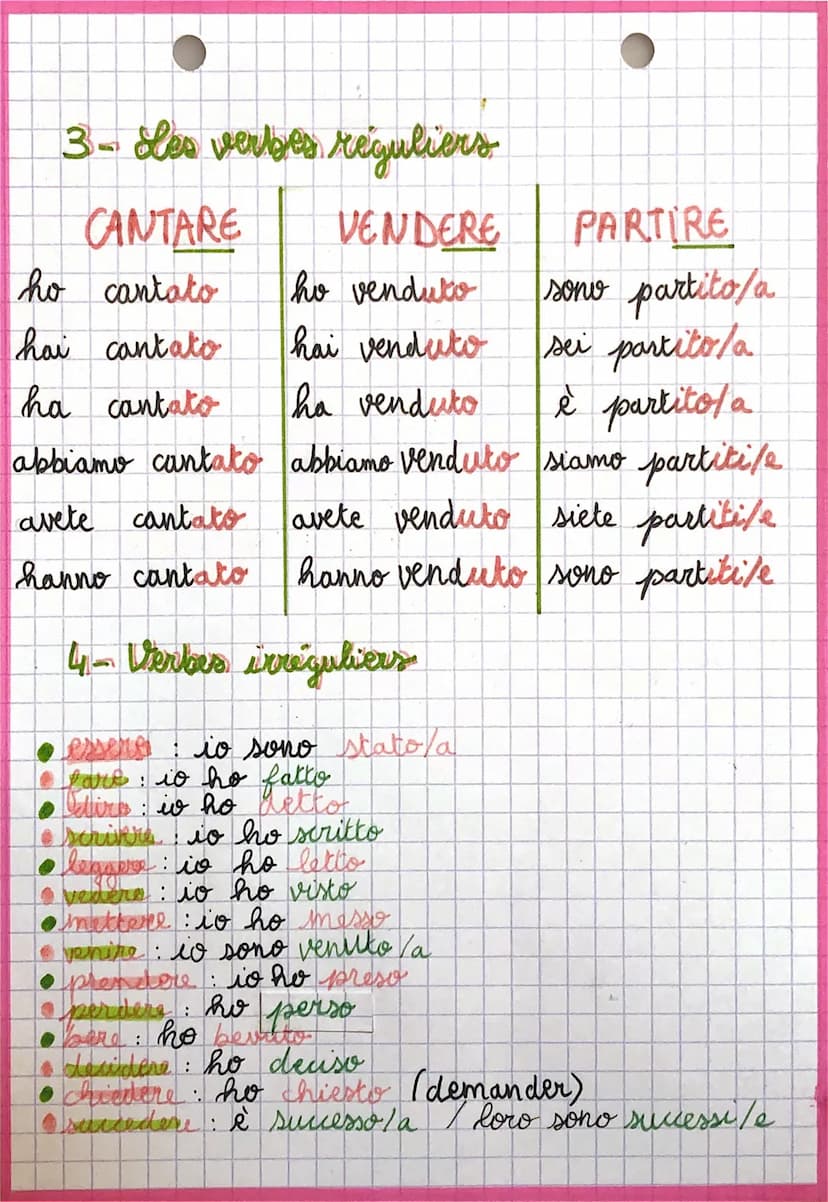 3- Les verbes réguliers
CANTARE VENDERE PARTIRE
ho cantato ho venduto sono partito/a
hai cantato hai venduto sei partito/a
ha cantato ha venduto è partito/a
abbiamo cantato abbiamo venduto siamo partiti/e
avete cantato avete venduto siete partiti/e
hanno cantato hanno venduto sono partiti/e
4- Verbes irréguliers
essere : io sono stato/a
fare : io ho fatto
dire : io ho detto
scrivere : io ho scritto
leggere : io ho letto
vedere : io ho visto
mettere : io ho messo
venire : io sono venuto/a
prendere : io ho preso
perdere : ho perso
bere : ho bevuto
decidere : ho deciso
chiedere : ho chiesto (demander)
succedere : è successo/a / loro sono successi/e